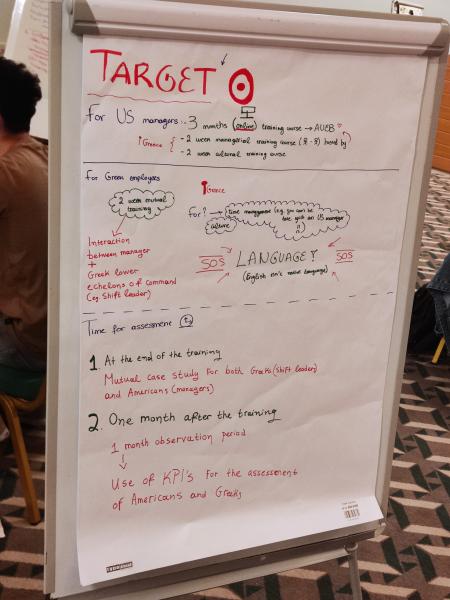 TARGET
For US managers: 3 months (online) training course → AUEB
Greece { - 2 week managerial training course hosted by
- 2 week cultural training course
For Greek employees
2 week mutual
training
Greece
For? → time management (e.g. you can be
late with an US manager
culture
Interaction
between manager
+
Greek lower
echelons of command
(eg. Shift leader)
SOS LANGUAGE? SOS
(English isn't native language)
Time for assessment
1. At the end of the training
Mutual case study for both Greeks (shift leader)
and Americans (managers)
2. One month after the training
1 month observation period
Use of KPI's for the assessment
of Americans and Greeks